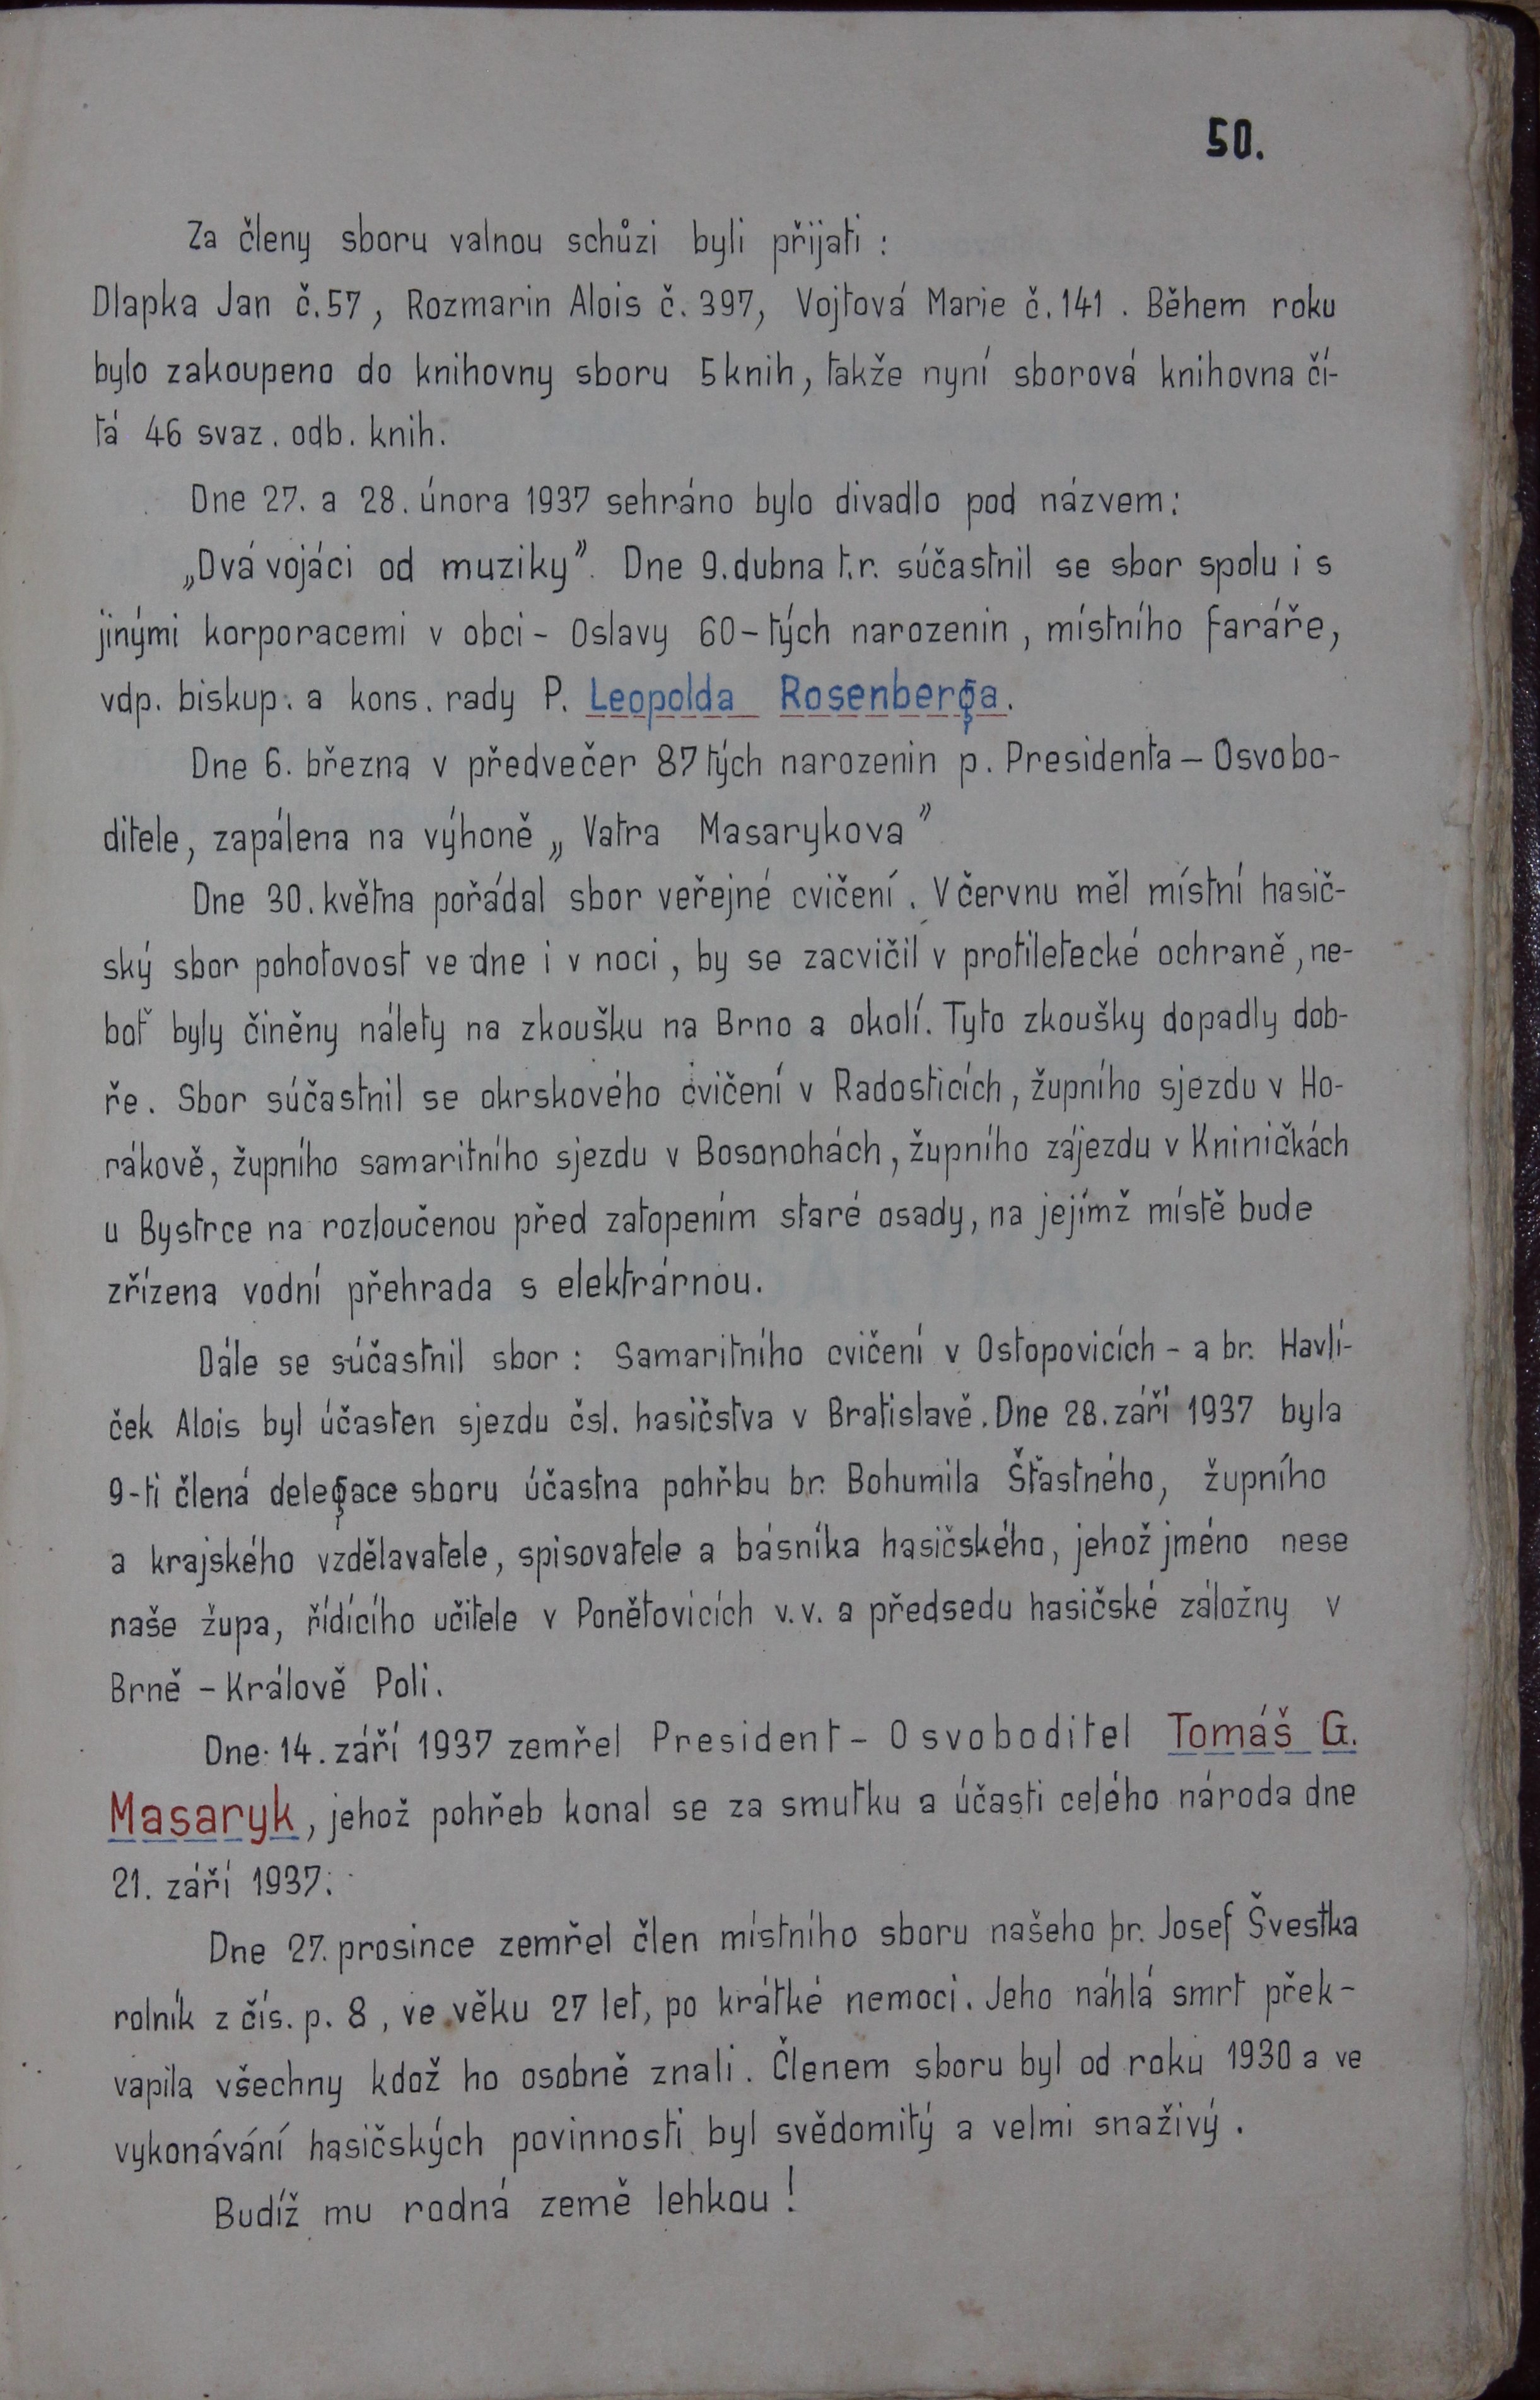 50.
Za členy sboru valnou schůzi byli přijati :
Dlapka Jan č.57, Rozmarin Alois č. 397, Vojtová Marie č.141 . Během roku
bylo zakoupeno do knihovny sboru 5 knih, takže nyní sborová knihovna čí-
tá 46 svaz. odb. knih.
Dne 27. a 28. února 1937 sehráno bylo divadlo pod názvem:
„Dvá vojáci od muziky". Dne 9. dubna t.r. súčastnil se sbor spolu i s
jinými korporacemi v obci - Oslavy 60-tých narozenin, místního faráře,
vdp. biskup. a kons. rady P. Leopolda Rosenberga.
Dne 6. března v předvečer 87 tých narozenin p. Presidenta - Osvobo-
ditele, zapálena na výhoně „ Vatra Masarykova "
Dne 30. května pořádal sbor veřejné cvičení. V červnu měl místní hasič-
ský sbor pohotovost ve dne i v noci, by se zacvičil v protiletecké ochraně, ne-
boť byly činěny nálety na zkoušku na Brno a okolí. Tyto zkoušky dopadly dob-
ře. Sbor súčastnil se okrskového cvičení v Radosticích, župního sjezdu v Ho-
rákově, župního samaritního sjezdu v Bosonohách, župního zájezdu v Kniničkách
u Bystrce na rozloučenou před zatopením staré osady, na jejímž místě bude
zřízena vodní přehrada s elektrárnou.
Dále se súčastnil sbor : Samaritního cvičení v Ostopovicích - a br. Havlí-
ček Alois byl účasten sjezdu čsl. hasičstva v Bratislavě. Dne 28. září 1937 byla
9-ti člená delegace sboru účastna pohřbu br. Bohumila Šťastného, župního
a krajského vzdělavatele, spisovatele a básníka hasičského, jehož jméno nese
naše župa, řídícího učitele v Ponětovicích v.v. a předsedu hasičské záložny v
Brně - Králově Poli.
Dne 14. září 1937 zemřel President - Osvoboditel Tomáš G.
Masaryk, jehož pohřeb konal se za smutku a účasti celého národa dne
21. září 1937.
Dne 27. prosince zemřel člen místního sboru našeho br. Josef Švestka
rolník z čís. p. 8, ve věku 27 let, po krátké nemoci. Jeho náhlá smrt přek-
vapila všechny kdož ho osobně znali. Členem sboru byl od roku 1930 a ve
vykonávání hasičských povinnosti byl svědomitý a velmi snaživý.
Budíž mu rodná země lehkou!